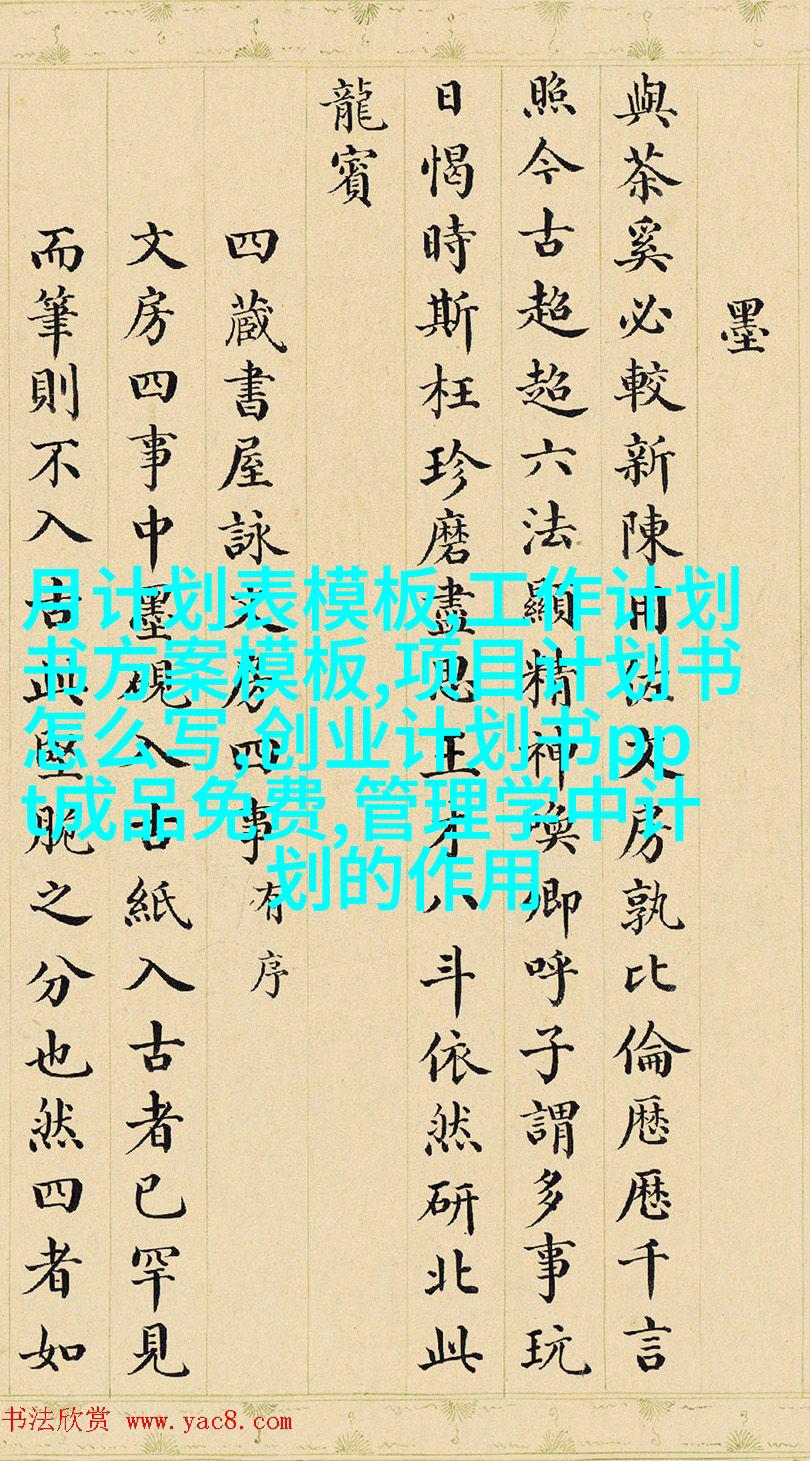 墨
與茶奚必較新陳用佐文房孰比倫厯厯千言
照今古超超六法顯精神喚卿呼子謂多事玩
日愒時斯枉珍磨盡思王才八斗依然研北此
龍賓
四蔵書屋詠文房四事有序
文房四事中墨硯入古紙入古者已罕見
而筆則不入古此堅脆之分也然四者如
月计划表模板,工作计划
书方案模板,项目计划书
怎么写,创业计划书pp
t成品免费,管理学中计
划的作用
书法欣赏 www.yac8.com